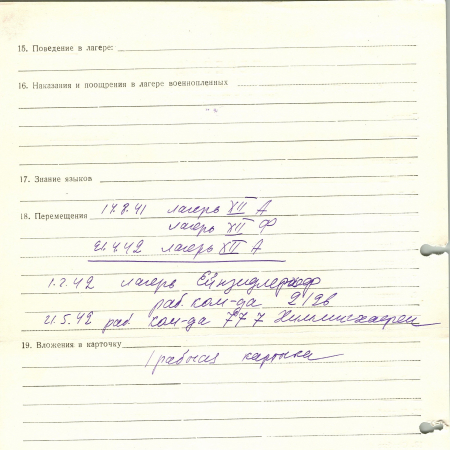 15. Поведение в лагере:
16. Наказания и поощрения в лагере военнопленных
17. Знание языков
17.8.41 лагерь XII А
18. Перемещения
лагерь XII Ф
21.4.42 лагерь XII А
1.2.42 лагерь Ейнзидлерхоф
раб. ком-да 2/2в
21.5.42 раб. ком-да 777
19. Вложения в карточку
1 рабочая карточка